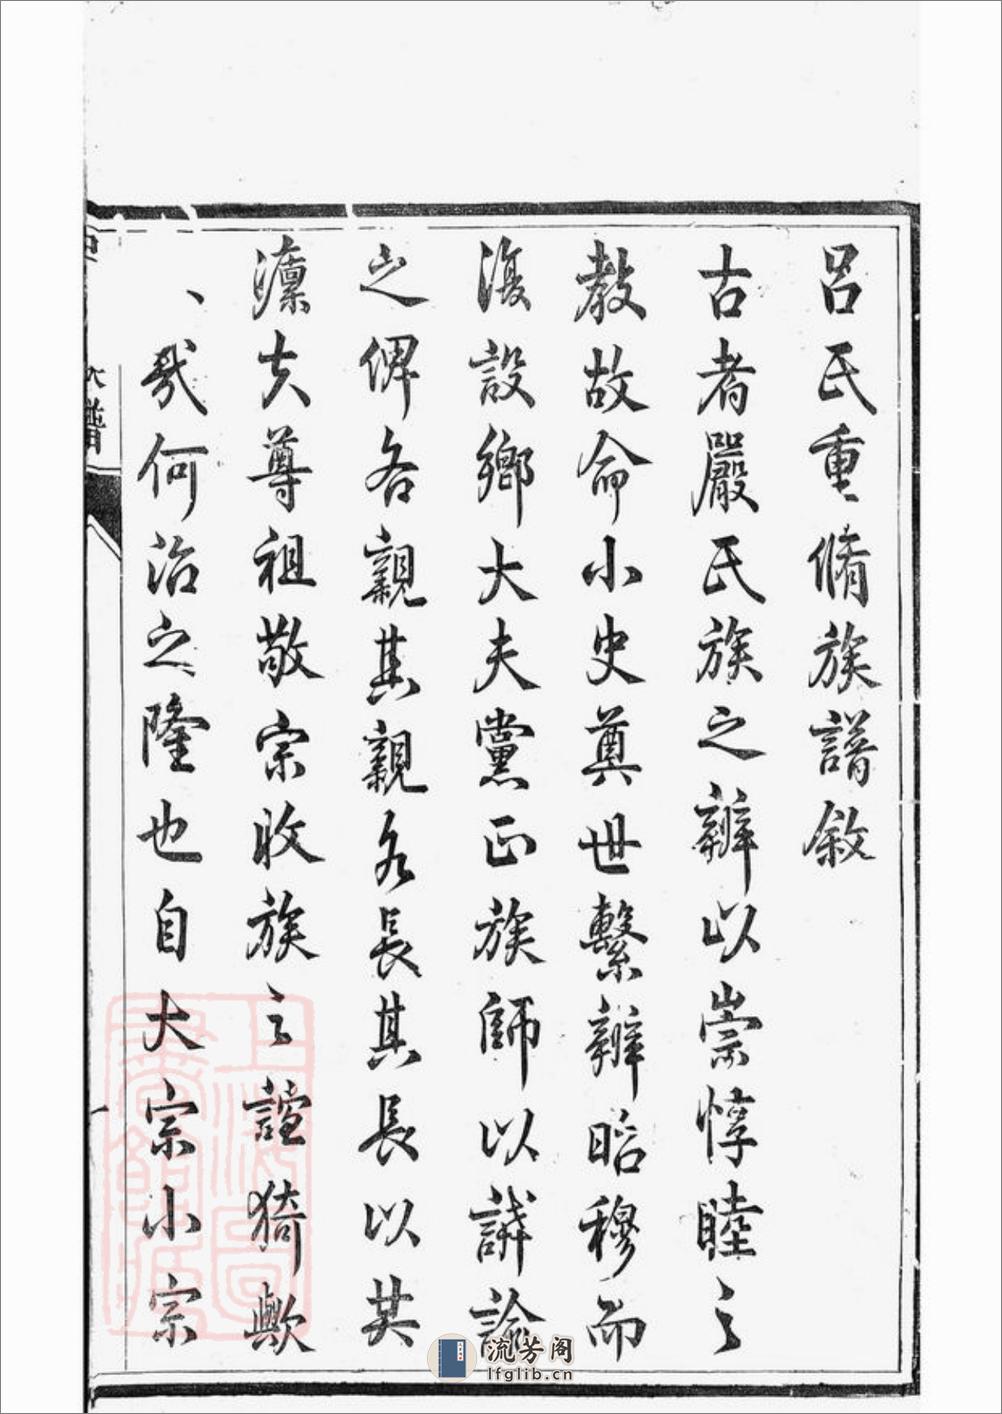 呂氏重脩族譜敘
古者嚴氏族之辨以崇惇睦之
教故命小史奠世繫辨昭穆而
復設鄉大夫黨正族師以講諭
之俾各親其親各長其長以共
凜夫尊祖敬宗收族之誼猗歟
、哉何治之隆也自大宗小宗
譜
上海圖書館藏
流芳阁
lfglib.cn